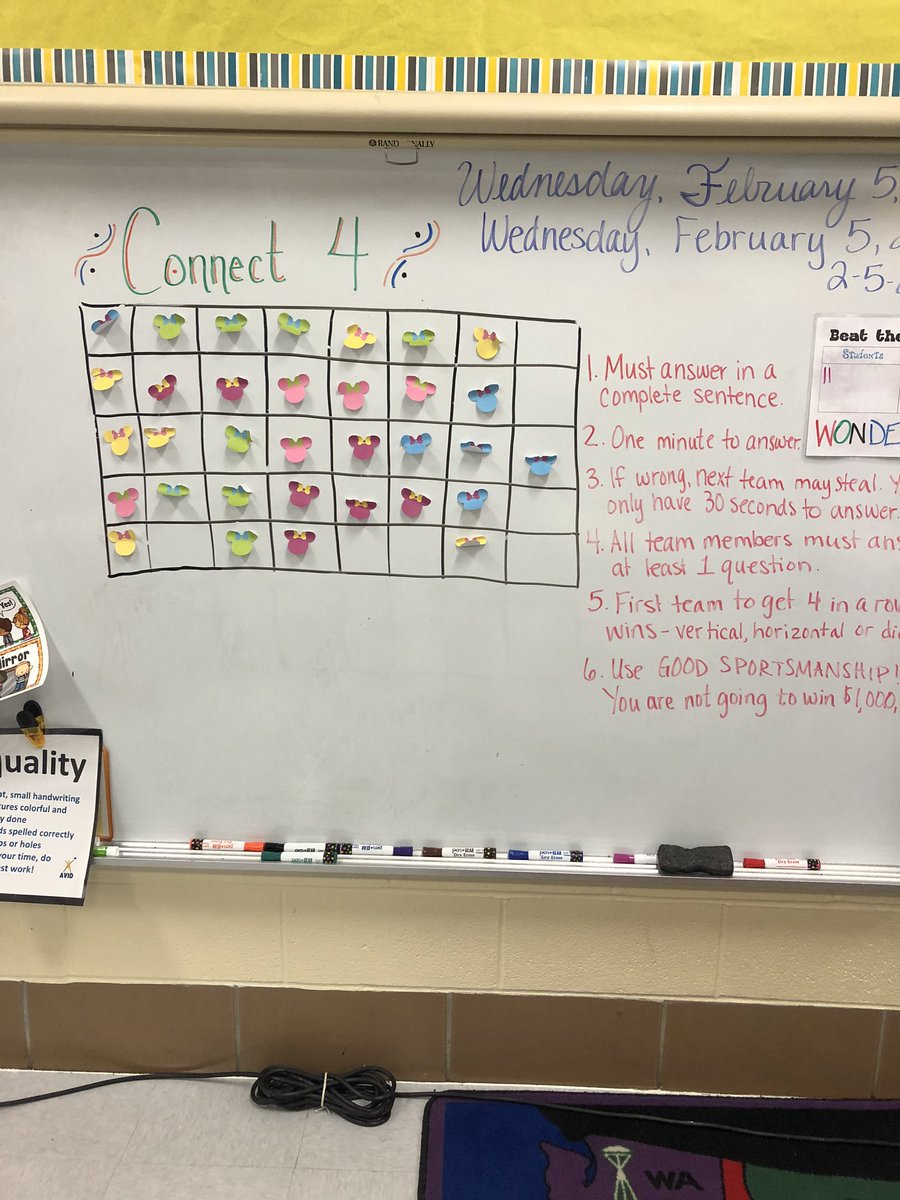 RAND McNALLY
Wednesday, February 5,
Wednesday, February 5,
2-5-
Connect 4
Beat the
Students
WONDE
1. Must answer in a
complete sentence.
2. One minute to answer.
3. If wrong, next team may steal. Y
only have 30 seconds to answer.
4. All team members must ans
at least 1 question.
5. First team to get 4 in a row
wins - vertical, horizontal or di
6. Use GOOD SPORTSMANSHIP!
You are not going to win $1,000,
Yes!
irror
uality
at, small handwriting
tures colorful and
y done
ds spelled correctly
ps or holes
your time, do
est work!
AVID
Dry Erase
Dry Erase
Dry Erase
WA